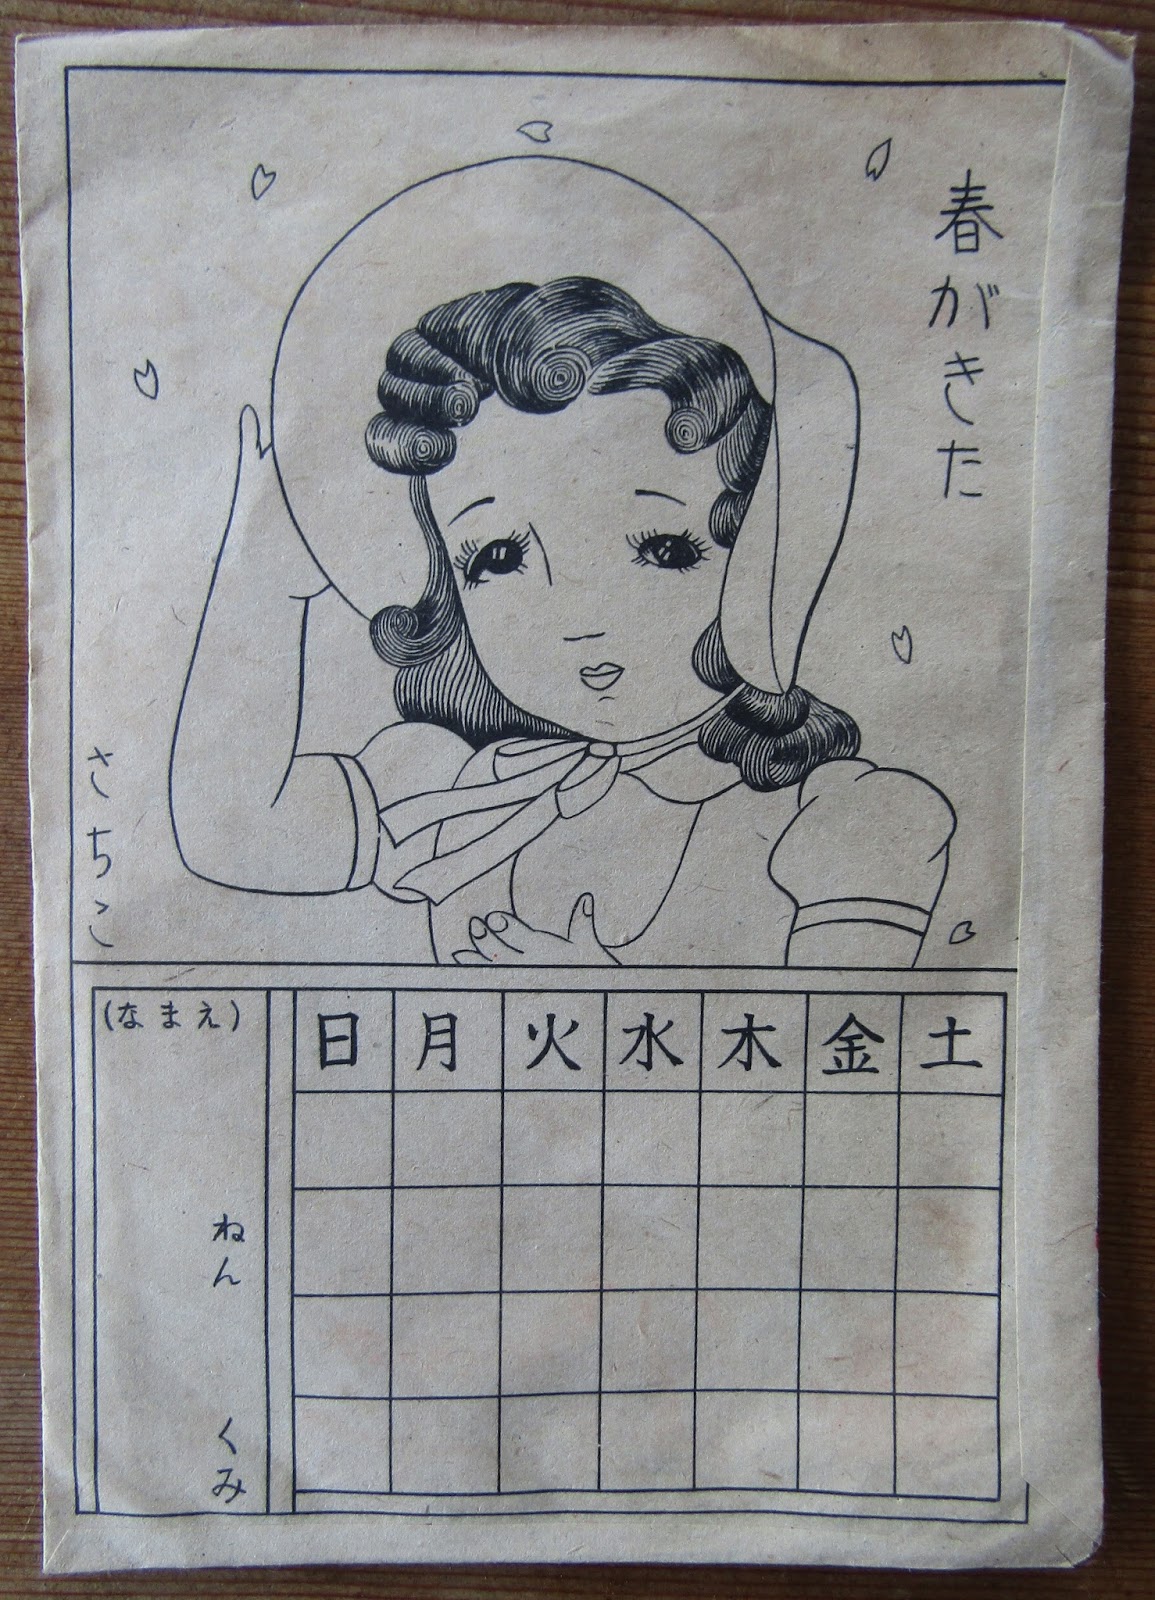 春がきた
さちこ
(なまえ)
ねん
くみ
日 月 火 水 木 金 土